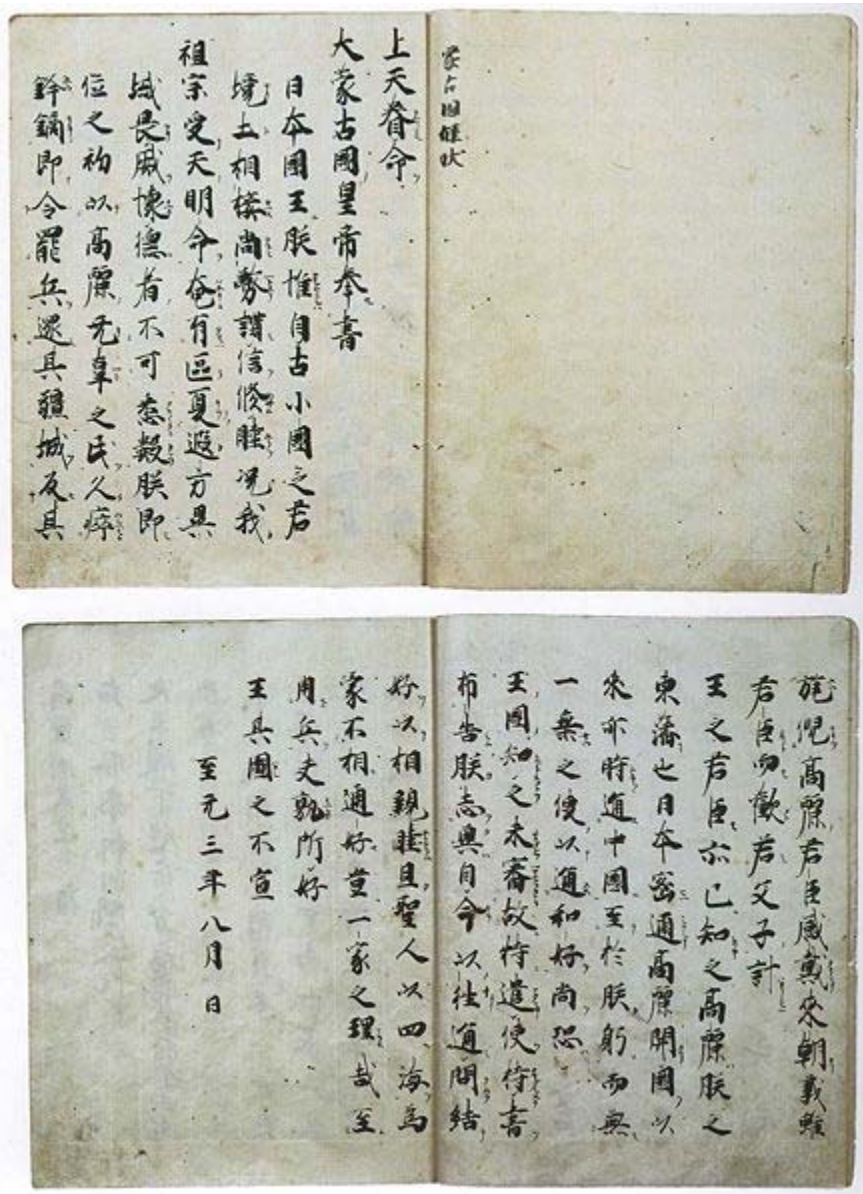 蒙古国牒状
上天眷命
大蒙古國皇帝奉書
日本國王朕惟自古小國之君
境土相接尚務講信修睦况我
祖宗受天明命奄有區夏遐方異
域畏威懐徳者不可悉数朕即
位之初以高麗无辜之民久瘁
鋒鏑即令罷兵還其疆域反其
旄倪高麗君臣感戴来朝義雖
君臣而歓若父子計
王之君臣亦已知之高麗朕之
東藩也日本密邇高麗開國以
来亦時通中國至於朕躬而無
一乗之使以通和好尚恐
王國知之未審故特遣使持書
布告朕志冀自今以往通問結
好以相親睦且聖人以四海為
家不相通好豈一家之理哉至
用兵夫孰所好
王其圖之不宣
至元三年八月日